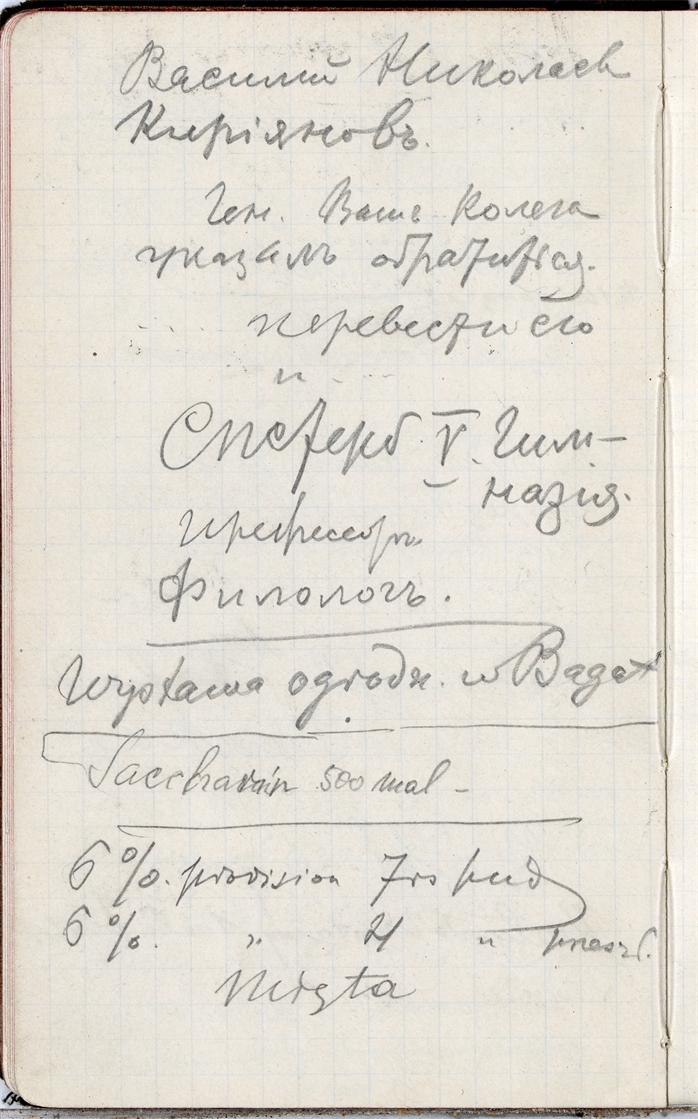 Василий Николаев
Киріяновъ.
Ген. Ваше Колега
указалъ обратиться.
перевести его
и
Спетерб. V. Гим-
назія.
профессоръ
Филологъ.
Wystawa ogrodn. w Bagat
Saccharin 500 mal -
6%. provision 7rs pud
6%. " 4 "
Mięta